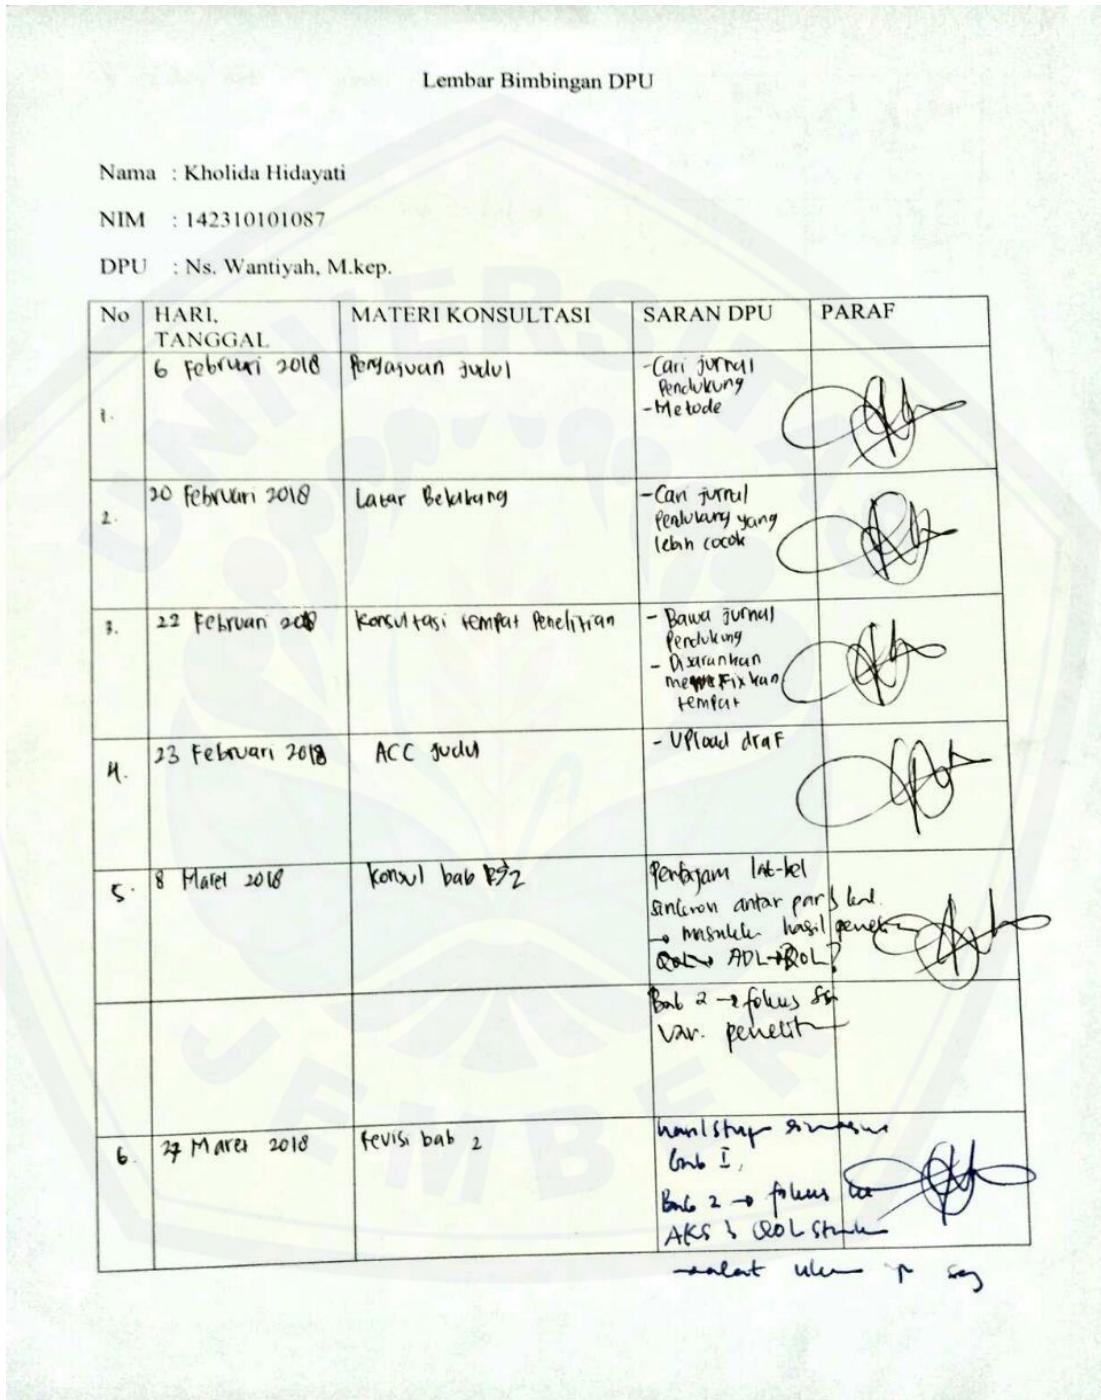 Lembar Bimbingan DPU
Nama : Kholida Hidayati
NIM : 142310101087
DPU : Ns. Wantiyah, M.kep.
No HARI, TANGGAL MATERI KONSULTASI SARAN DPU PARAF
1. 6 Februari 2018 Pengajuan judul -Cari jurnal
Pendukung
-Metode
2. 20 Februari 2018 Latar Belakang -Cari jurnal
Pendukung yang
lebih cocok
3. 22 Februari 2018 Konsultasi tempat Penelitian - Bawa jurnal
Pendukung
- Disarankan
Fixkan
tempat
4. 23 Februari 2018 ACC judul - Upload draf
5. 8 Maret 2018 Konsul bab 2 Pertajam lat-bel
sinkron antar
hasil
ADL QOL?
Bab 2 → fokus
var. penelit
6. 27 Maret 2018 revisi bab 2
bab I,
Bab 2 → fokus
AKS QOL
UNIVERSITAS
JEMBER